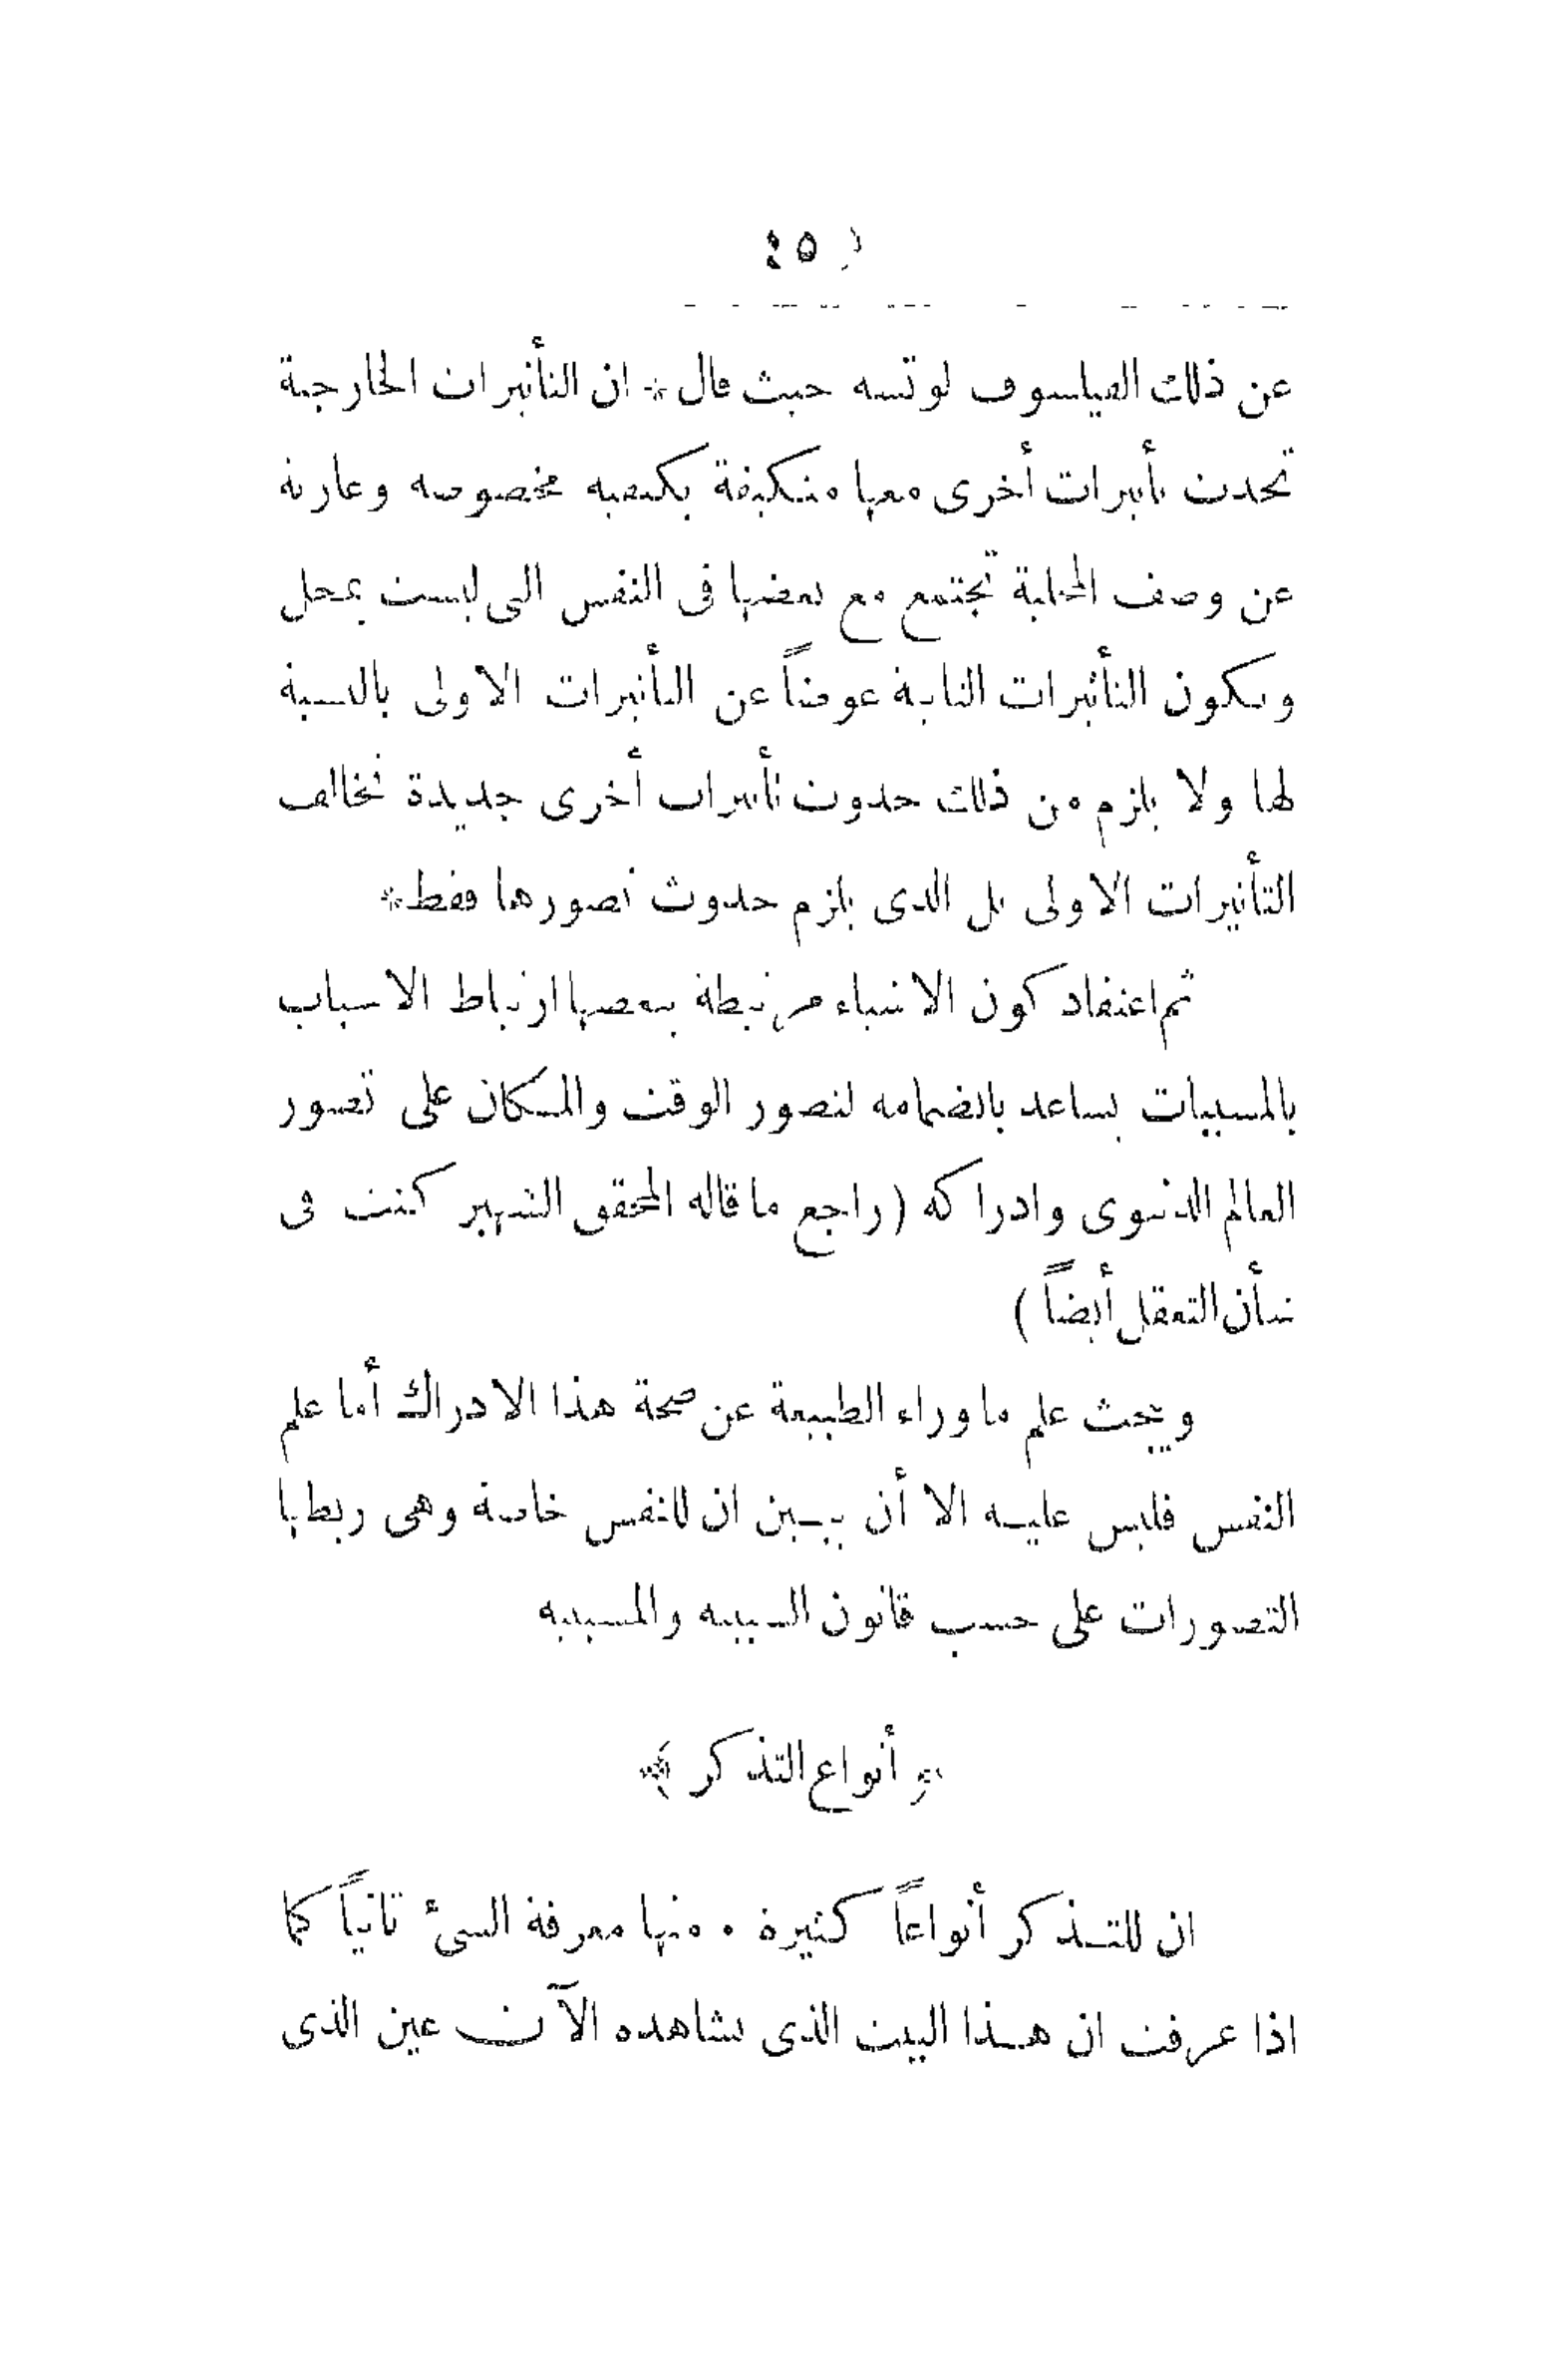 عن ذلك الفيلسوف لوتسه حيث قال * ان التأثيرات الخارجية
تحدث تأثيرات أخرى معها متكيفة بكيفية مخصوصة وعارية
عن وصف المحلية تجتمع مع بعضها فى النفس التى ليست بمحل
وتكون التأثيرات الثانية عوضاً عن التأثيرات الاولى بالنسبة
لها ولا يلزم من ذلك حدوث تأثيرات أخرى جديدة تخالف
التأثيرات الاولى بل الذى يلزم حدوث تصورها فقط *
ثم اعتقاد كون الاشياء مرتبطة ببعضها ارتباط الاسباب
بالمسببات يساعد بانضمامه لتصور الوقت والمكان على تصور
العالم الدنيوى وادراكه ( راجع ما قاله المحقق الشهير كنت فى
شأن التعقل أيضاً )
ويبحث علم ما وراء الطبيعة عن صحة هذا الادراك أما علم
النفس فليس عليه الا أن يبين ان للنفس خاصة وهى ربطها
التصورات على حسب قانون السببية والمسببية
﴿ أنواع التذكر ﴾
ان للتذكر أنواعاً كثيرة . منها معرفة الشئ ثانياً كما
اذا عرفت ان هذا البيت الذى نشاهده الآن عين الذى